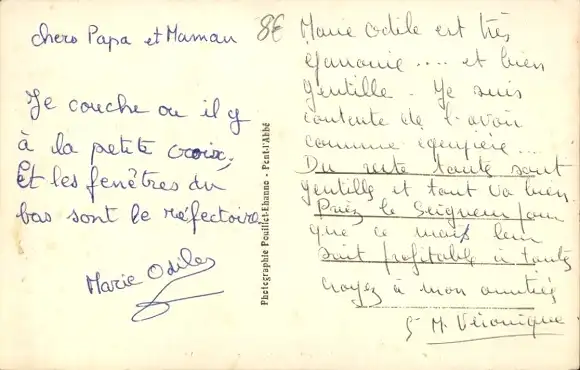 chers Papa et Maman
Je couche ou il y
à la petite croix,
Et les fenêtres du
bas sont le réfectoire
Marie Odile
8€
Photographie Pouillot-Ehanno - Pont-l'Abbé
Marie Odile est très
épanouie .... et bien
gentille. Je suis
contente de l'avoir
comme équipière...
Du reste toutes sont
gentilles et tout va bien
Priez le Seigneur pour
que ce mois leur
soit profitable à toutes
croyez à mon amitié
Sr M. Véronique